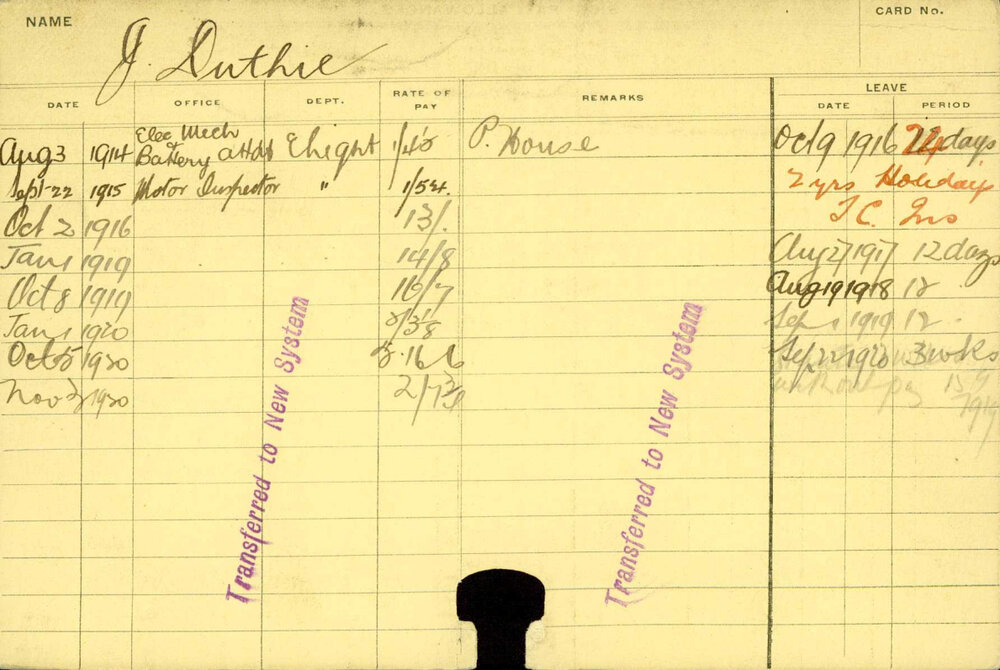 NAME
CARD No.
J. Duthie
DATE OFFICE DEPT. RATE OF PAY REMARKS LEAVE
DATE PERIOD
Elec Mech
Aug 3 1914 Battery attdt Elight P. House Oct 9 1916 24 days
Sept 22 1915 Motor Inspector " 2 yrs Holiday
Oct 2 1916 13/. T.C.
Jan 1 1919 14/8 Aug 27 1917 12 days
Oct 8 1919 16/7 Aug 19 1918 12
Jan 1 1920 Sep 1 1919 12
Oct 5 1920 Sep 22 1920 3 wks
Nov 1920 without pay
Transferred to New System
Transferred to New System